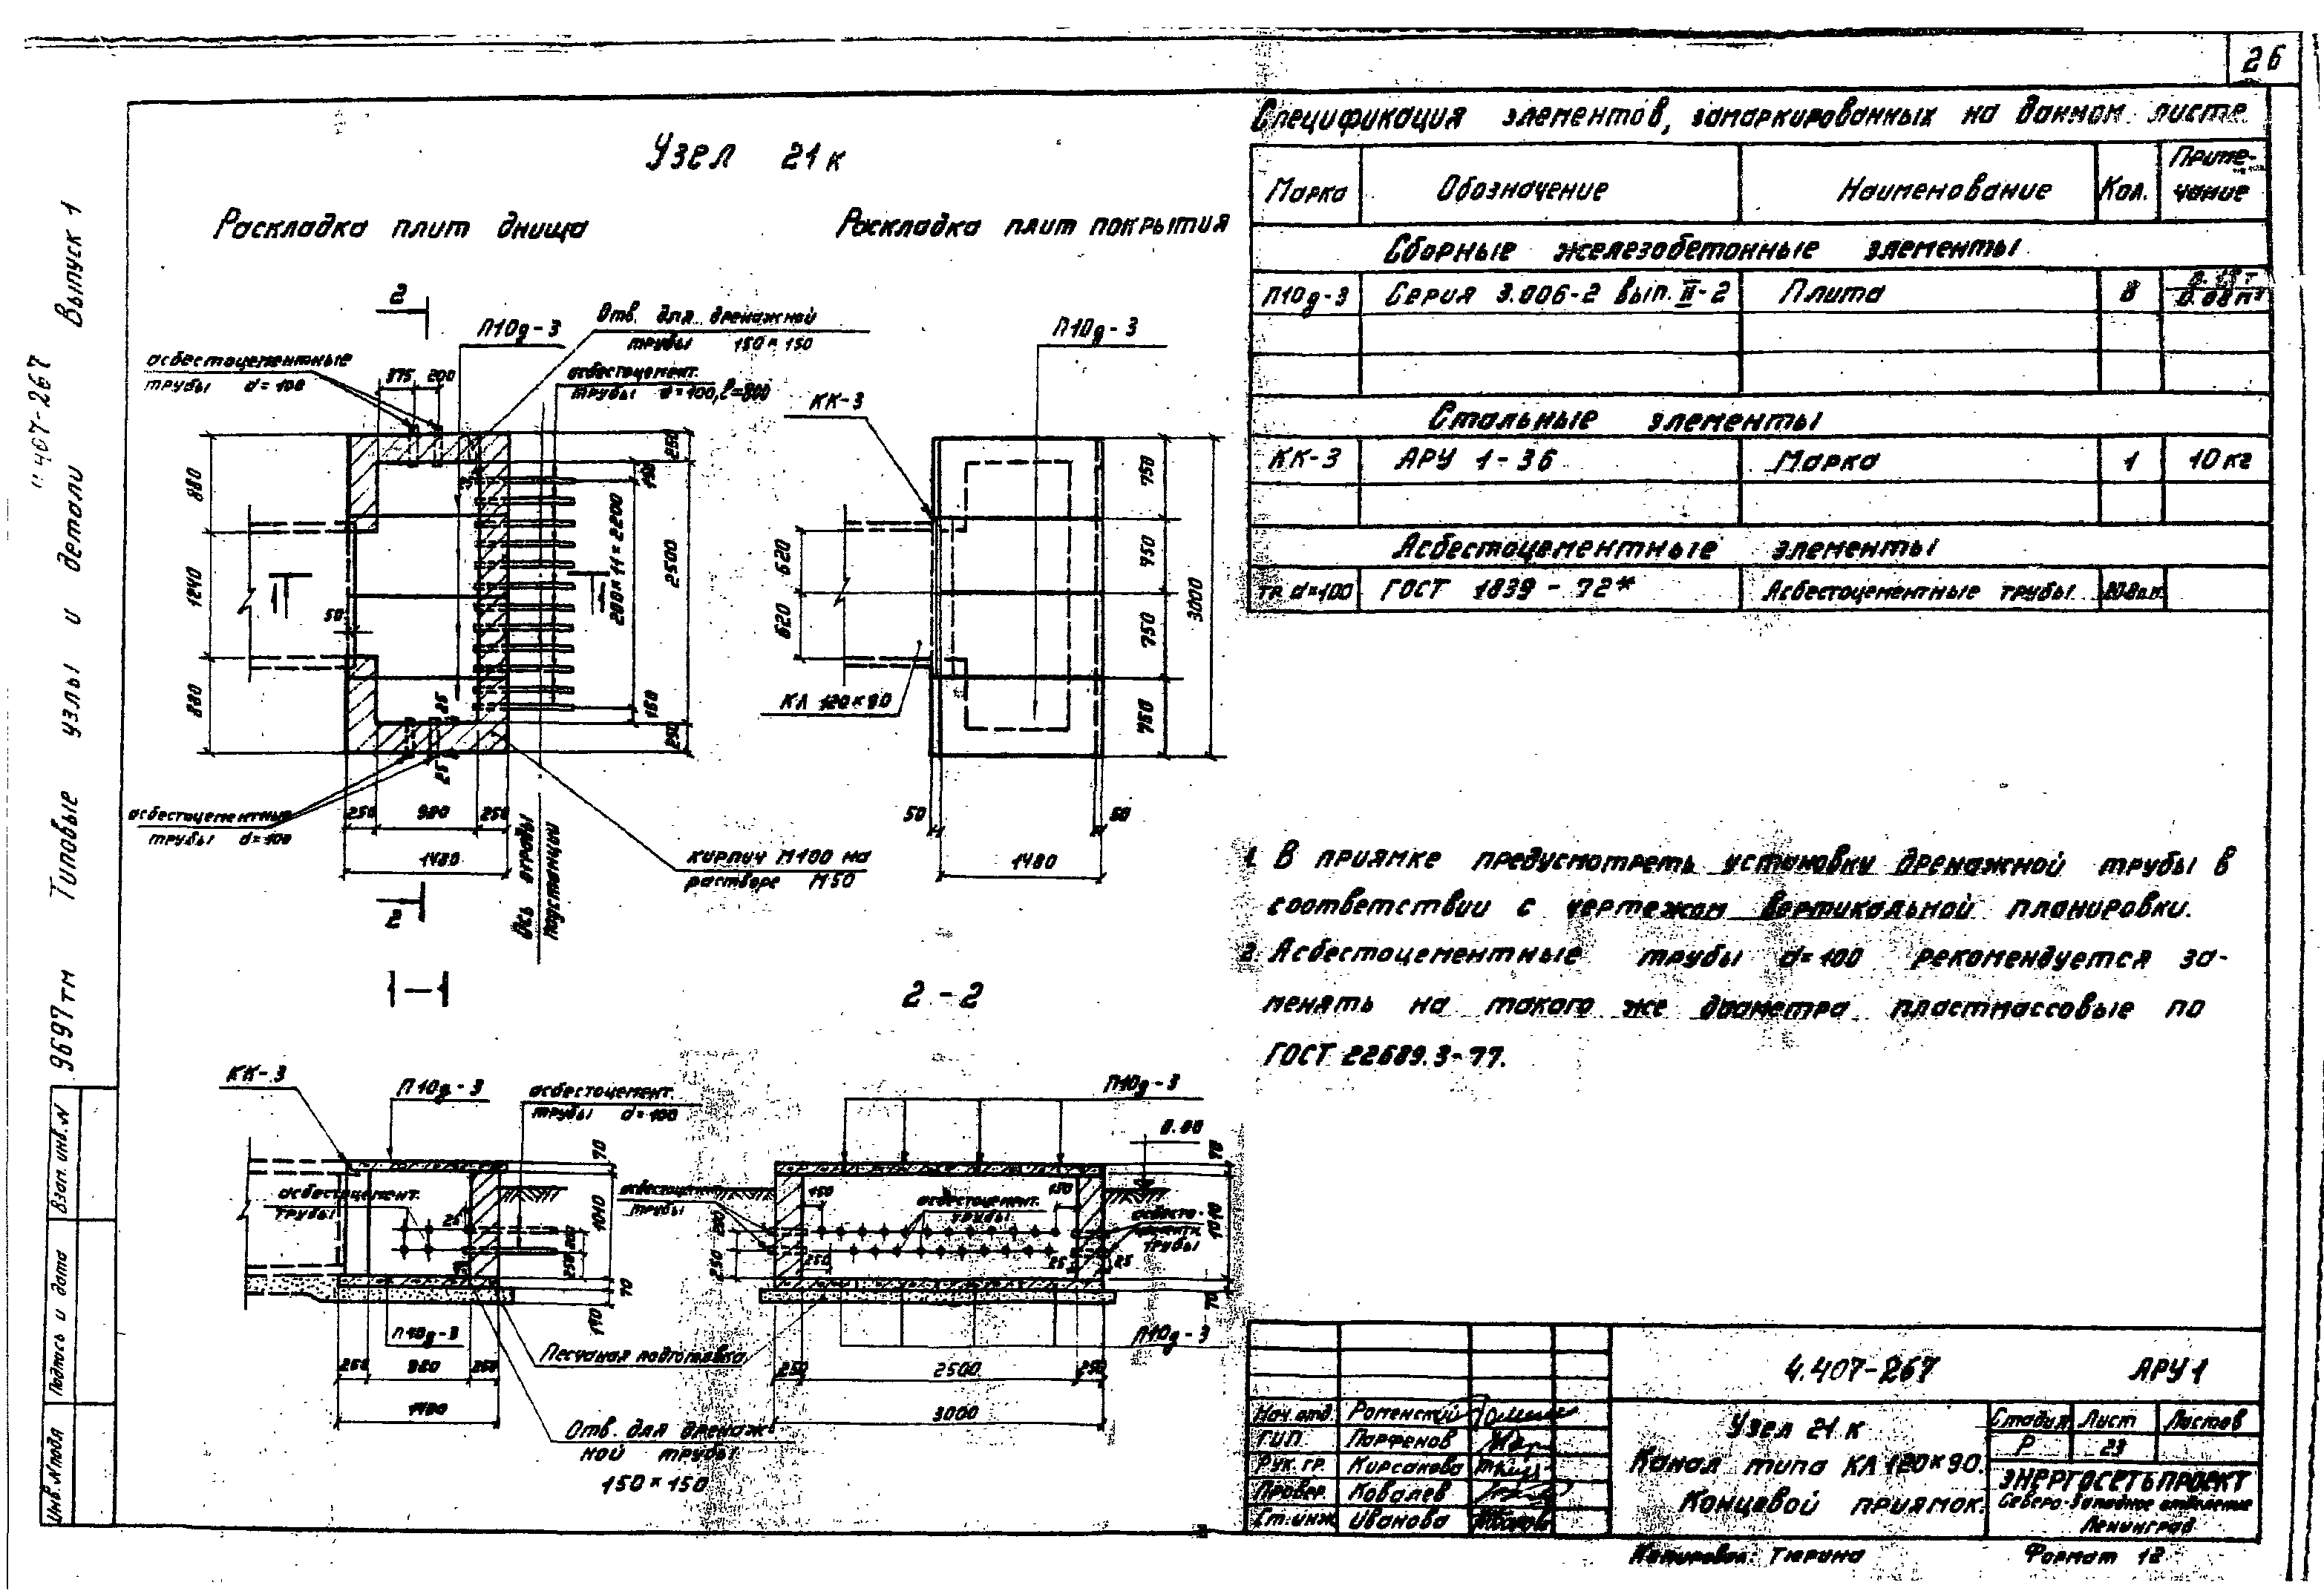 26
Узел 21к
Раскладка плит днища
Раскладка плит покрытия
2
П10д-3
Отв. для дренажной
трубы 150×150
асбестоцементные
трубы d=100
375 200
асбестоцемент.
трубы d=100, ℓ=800
880
1240
880
50
250
200×11=2200
2500
150
250
25
25
асбестоцементные
трубы d=100
250 980 250
1480
2
Ось ограды
подстанции
кирпич М100 на
растворе М50
П10д-3
КК-3
620
620
750
750
750
3000
КЛ 120×90
50
50
1480
1-1
КК-3
П10д-3
асбестоцемент.
трубы d=100
асбестоцемент.
трубы
25
70
1040
70
140
П10д-3
Песчаная подготовка
250 980 250
1480
Отв. для дренаж-
ной трубы
150×150
2-2
П10д-3
0.00
70
150
150
асбестоцемент.
трубы
трубы
асбесто-
трубы
250
250
25
25
70
П10д-3
250 2500 250
3000
Спецификация элементов, замаркированных на данном листе
Марка Обозначение Наименование Кол. Приме-
чание
Сборные железобетонные элементы
П10д-3 Серия 3.006-2 вып. II-2 Плита 8
0.08м³
Стальные элементы
КК-3 АРУ 1-36 Марка 1 10кг
Асбестоцементные элементы
тр d=100 ГОСТ 1839-72* Асбестоцементные трубы
1. В приямке предусмотреть установку дренажной трубы в
соответствии с чертежом вертикальной планировки.
2. Асбестоцементные трубы d=100 рекомендуется за-
менять на такого же диаметра пластмассовые по
ГОСТ 22689.3-77.
4.407-267 АРУ1
Нач.отд. Роменский
ГИП Парфенов
Рук.гр. Кирсанова
Провер. Ковалев
Ст.инж. Иванова
Узел 21к
Канал типа КЛ 120×90.
Концевой приямок.
Стадия Лист Листов
Р 23
ЭНЕРГОСЕТЬПРОЕКТ
Северо-Западное отделение
Ленинград
Копировал: Тюрина Формат 12
4.407-267
Типовые узлы и детали Выпуск 1
9697тм
Взам. инв.N
Подпись и дата
Инв.Nподл